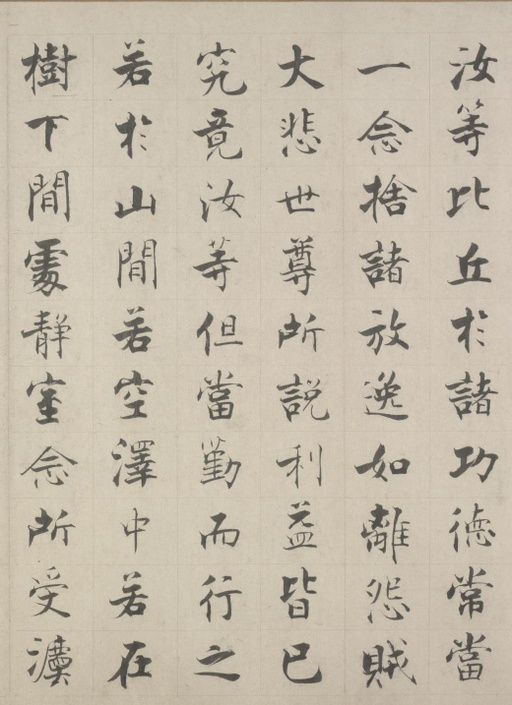 汝等比丘於諸功德常當
一念捨諸放逸如離怨賊
大悲世尊所説利益皆已
究竟汝等但當勤而行之
若於山間若空澤中若在
樹下間處静室念所受灋